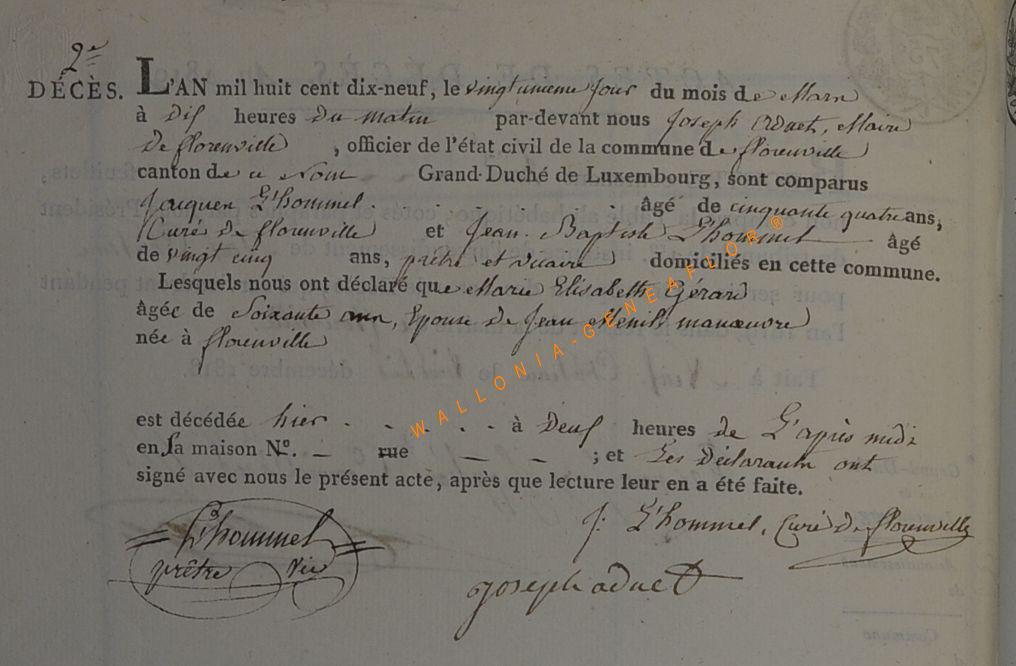 2e
DÉCÈS. L'AN mil huit cent dix-neuf, le vingtunieme jour du mois de Mars
à Dix heures Du matin par-devant nous Joseph Aduet, Maire
De florenville, officier de l'état civil de la commune de florenville
canton de ce Nom Grand-Duché de Luxembourg, sont comparus
Jacques L'hommel . . . . . . âgé de cinquante quatre ans,
Curés de florenville et Jean Baptiste L'hommel âgé
de vingt cinq ans, prêtre et vicaire domiciliés en cette commune.
Lesquels nous ont déclaré que Marie Elisabeth Gérard
âgée de Soixante ans, Epouse de Jean manœuvre
née à florenville
est décédée hier . - . . . à Deux heures de L'après midi
en Sa maison N.° — rue — — ; et Les Déclarants ont
signé avec nous le présent acte, après que lecture leur en a été faite.
L'hommel J: L'hommel, Curé De florenville
prêtre vic
joseph aduet
WALLONIA-GENEAFLOR®